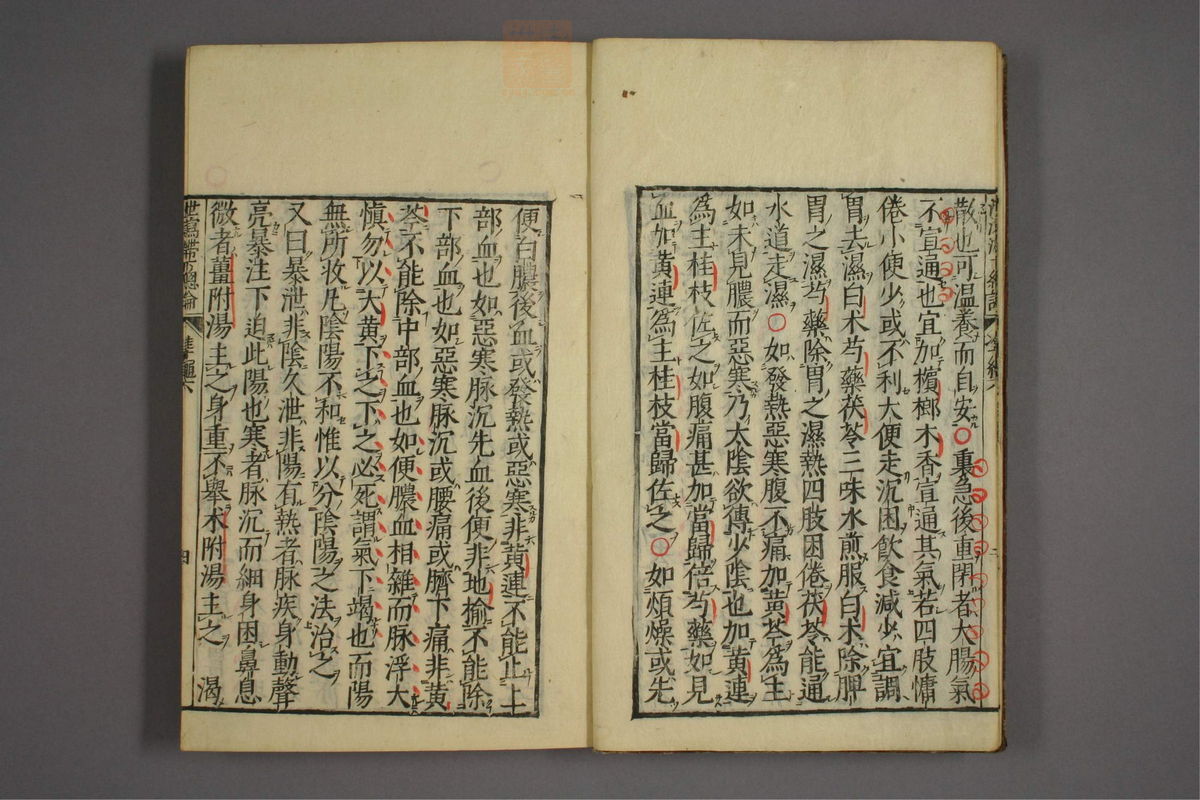 散也可温養而自安○裏急後重閉者大腸氣
不宣通也宜加檳榔木香宣通其氣若四肢慵
倦小便少或不利大便走沉困飲食減少宜調
胃去濕白术芍藥茯苓三味水煎服白术除脾
胃之濕芍藥除胃之濕熱四肢困倦茯苓能通
水道走濕○如發熱惡寒腹不痛加黃芩為主
如未見膿而惡寒乃太陰欲傳少陰也加黃連
為主桂枝佐之如腹痛甚加當歸倍芍藥如見
血如黃連為主桂枝當歸佐之○如煩燥或先
便白膿後血或發熱或惡寒非黃連不能止上
部血也如惡寒脉沉先血後便非地榆不能除
下部血也如惡寒脉沉或腰痛或臍下痛非黃
芩不能除中部血也如便膿血相雜而脉浮大
慎勿以大黃下之下之必死謂氣下竭也而陽
無所收凡陰陽不和惟以分陰陽之法治之
又曰暴泄非陰久泄非陽有熱者脉疾身動聲
亮暴注下迫此陽也寒者脉沉而細身困鼻息
微者薑附湯主之身重不舉术附湯主之 渴
四